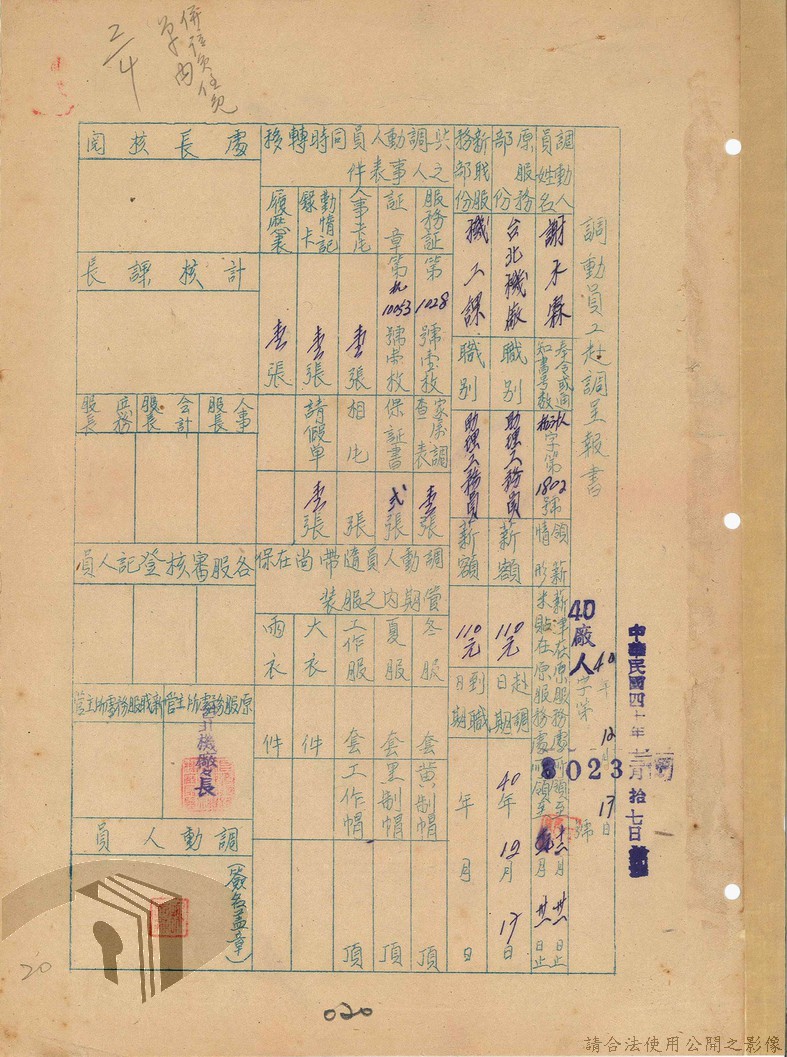 調動員工赴調呈報書
40廠人字第
40年12月17日
8023號
中華民國四十年
拾七日
調動人員姓名
謝
奉令或通知書號數
字第1802號
領薪情形
薪津在原服務處所領至十二月卅一日止
米貼在原服務處所領至
月卅一日止
原服務部份
台北機廠
職別
助理工務員
薪額
110元
赴調日期
40年12月17日
新職服務部份
機工課
職別
助理工務員
薪額
110元
到職日期
年月日
與調動人員同時轉移之人事表件
服務証
第1028號壹枚
家庭調查表
壹張
証章
第
10053號壹枚
保証書
弍張
人事卡片
壹張
相片
張
勤惰記錄卡
壹張
請假單
壹張
履歷表
壹張
調動人員隨帶尚在保管期內之服裝
冬服
套
黃制帽
頂
夏服
套
黑制帽
頂
工作服
套
工作帽
頂
大衣
件
雨衣
件
處長核閱
計核課長
人事股長
會計股長
庶務股長
各股審核登記人員
原服務處所主管
新職服務處所主管
調動人員
(簽名蓋章)
2/4
20
020
請合法使用公開之影像